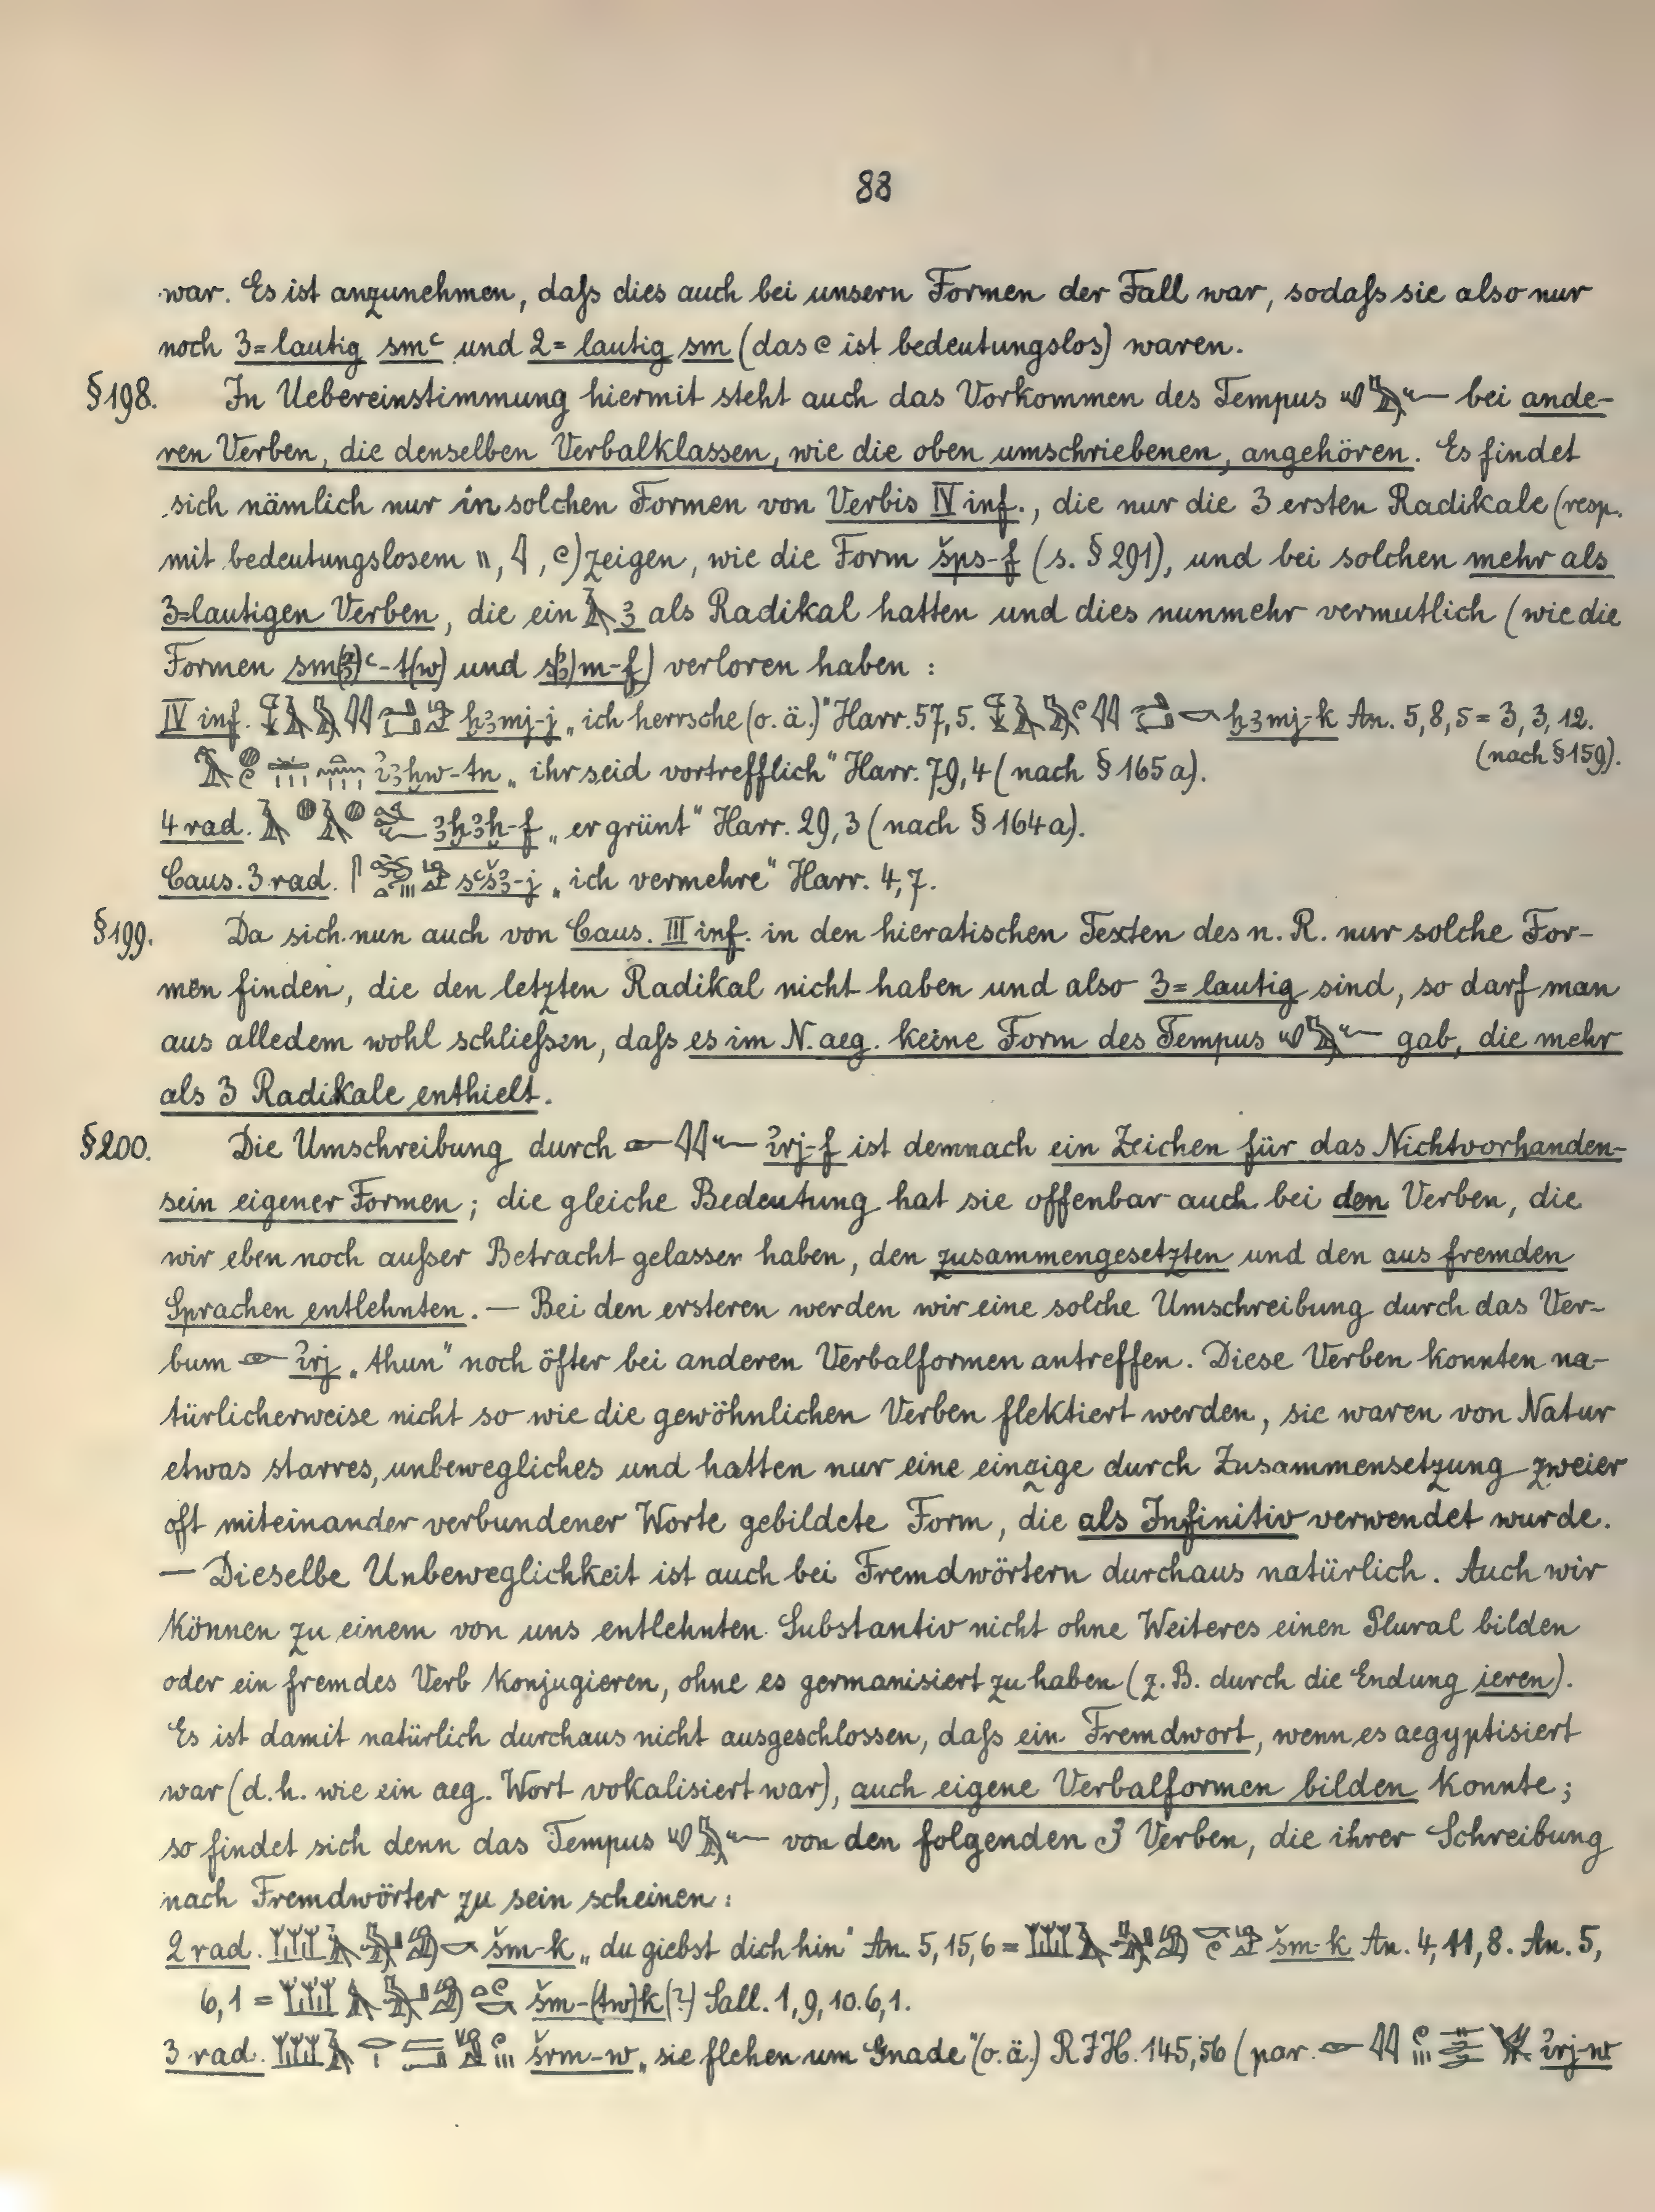 88
war. Es ist anzunehmen, daſs dies auch bei unsern Formen der Fall war, sodaſs sie also nur
noch 3=lautig smꜥ und 2=lautig sm (das 𓏲 ist bedeutungslos) waren.
§198. In Uebereinstimmung hiermit steht auch das Vorkommen des Tempus bei ande-
ren Verben, die denselben Verbalklassen, wie die oben umschriebenen, angehören. Es findet
sich nämlich nur in solchen Formen von Verbis IV inf., die nur die 3 ersten Radikale (resp.
mit bedeutungslosem 𓏭, 𓇋, 𓏲) zeigen, wie die Form šps-f (s. §291), und bei solchen mehr als
3=lautigen Verben, die ein 𓄿 ꜣ als Radikal hatten und dies nunmehr vermutlich (wie die
Formen sm(ꜣ)ꜥ-t(w) und s(ꜣ)m-f) verloren haben :
IV inf. ḥꜣmj-j „ich herrsche (o. ä.)" Harr. 57,5. ḥꜣmj-k An. 5,8,5 = 3,3,12.
(nach §159).
iꜣḫw-tn „ihr seid vortrefflich" Harr. 79,4 (nach §165a).
4 rad. ꜣḫꜣḫ-f „er grünt" Harr. 29,3 (nach §164a).
Caus. 3 rad. sꜥšꜣ-j „ich vermehre" Harr. 4,7.
§199. Da sich nun auch von Caus. III inf. in den hieratischen Texten des n. R. nur solche For-
men finden, die den letzten Radikal nicht haben und also 3=lautig sind, so darf man
aus alledem wohl schlieſsen, daſs es im N. aeg. keine Form des Tempus gab, die mehr
als 3 Radikale enthielt.
§200. Die Umschreibung durch 𓁹𓇋𓇋𓆑 irj-f ist demnach ein Zeichen für das Nichtvorhanden-
sein eigener Formen; die gleiche Bedeutung hat sie offenbar auch bei den Verben, die
wir eben noch auſser Betracht gelassen haben, den zusammengesetzten und den aus fremden
Sprachen entlehnten. — Bei den ersteren werden wir eine solche Umschreibung durch das Ver-
bum 𓁹 irj „thun" noch öfter bei anderen Verbalformen antreffen. Diese Verben konnten na-
türlicherweise nicht so wie die gewöhnlichen Verben flektiert werden, sie waren von Natur
etwas starres, unbewegliches und hatten nur eine einzige durch Zusammensetzung zweier
oft miteinander verbundener Worte gebildete Form, die als Infinitiv verwendet wurde.
— Dieselbe Unbeweglichkeit ist auch bei Fremdwörtern durchaus natürlich. Auch wir
können zu einem von uns entlehnten Substantiv nicht ohne Weiteres einen Plural bilden
oder ein fremdes Verb konjugieren, ohne es germanisiert zu haben (z. B. durch die Endung ieren).
Es ist damit natürlich durchaus nicht ausgeschlossen, daſs ein Fremdwort, wenn es aegyptisiert
war (d. h. wie ein aeg. Wort vokalisiert war), auch eigene Verbalformen bilden konnte;
so findet sich denn das Tempus von den folgenden 3 Verben, die ihrer Schreibung
nach Fremdwörter zu sein scheinen :
2 rad. šm-k „du giebst dich hin" An. 5,15,6 = šm-k An. 4,11,8. An. 5,
6,1 = šm-(tw)k(?) Sall. 1,9,10. 6,1.
3 rad. šrm-w „sie flehen um Gnade" (o. ä.) RJH. 145,56 (par. irj-w